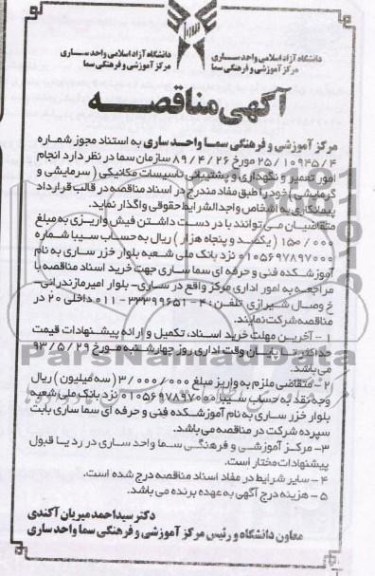 دانشگاه آزاد اسلامی واحد ساری
مرکز آموزشی و فرهنگی سما
دانشگاه آزاد اسلامی واحد ساری
مرکز آموزشی و فرهنگی سما
آگهی مناقصه
مرکز آموزشی و فرهنگی سما واحد ساری به استناد مجوز شماره
۲۵/۱۰۹۴۵/۴ مورخ ۸۹/۴/۲۶ سازمان سما در نظر دارد انجام
امور تعمیر و نگهداری و پشتیبانی تاسیسات مکانیکی (سرمایشی و
گرمایشی) خود را طبق مفاد مندرج در اسناد مناقصه در قالب قرارداد
پیمانکاری به اشخاص واجد الشرایط حقوقی واگذار نماید.
متقاضیان می توانند با در دست داشتن فیش واریزی به مبلغ
۱۵۰/۰۰۰ (یکصد و پنجاه هزار) ریال به حساب سیبا شماره
۰۱۰۵۶۹۷۸۹۷۰۰۰ نزد بانک ملی شعبه بلوار خزر ساری به نام
آموزشکده فنی و حرفه ای سما ساری جهت خرید اسناد مناقصه با
مراجعه به امور اداری مرکز واقع در ساری- بلوار امیرمازندرانی-
خ وصال شیرازی تلفن: ۴-۳۳۳۹۹۶۵۱-۰۱۱ داخلی ۲۰ در
مناقصه شرکت نمایند.
۱- آخرین مهلت خرید اسناد، تکمیل و ارائه پیشنهادات قیمت
حداکثر تا پایان وقت اداری روز چهارشنبه مورخ ۹۳/۵/۲۹
می باشد.
۲- متقاضی ملزم به واریز مبلغ ۳/۰۰۰/۰۰۰ (سه میلیون) ریال
وجه نقد به حساب سیبا ۰۱۰۵۶۹۷۸۹۷۰۰۰ نزد بانک ملی شعبه
بلوار خزر ساری به نام آموزشکده فنی و حرفه ای سما ساری بابت
سپرده شرکت در مناقصه می باشد.
۳- مرکز آموزشی و فرهنگی سما واحد ساری در رد یا قبول
پیشنهادات مختار است.
۴- سایر شرایط در مفاد اسناد مناقصه درج شده است.
۵- هزینه درج آگهی به عهده برنده می باشد.
دکتر سید احمد میریان آکندی
معاون دانشگاه و رئیس مرکز آموزشی و فرهنگی سما واحد ساری
ParsNamadData